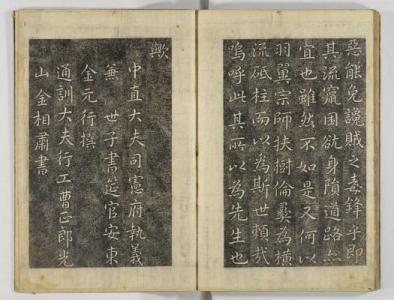 惡能免讒賊之毒鋒乎即
其流竄困欲身隕道路亦
宜也雖然不如是又何以
羽翼宗師扶樹倫彜為橫
流砥柱而以為斯世賴哉
嗚呼此其所以為先生也
歟
中直大夫司憲府執義
兼 世子書筵官安東
金元行撰
通訓大夫行工曹正郎光
山金相肅書